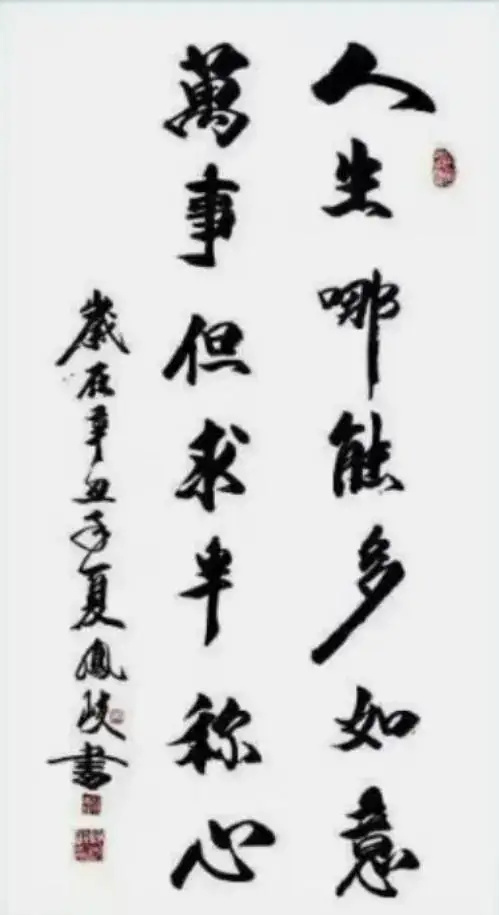 人生哪能多如意
萬事但求半称心
歲在辛丑年夏鳳岐書